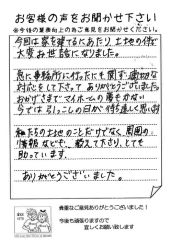 お客様の声をお聞かせ下さい
※今後の業務向上の為ご意見をお聞かせください。
今回は家を建てるにあたり、土地の件で
大変お世話になりました。
急に事務所に行ったにも関ず、適切な
対応をして下さって ありがとうございました。
おかげさまで、マイホームの夢もかない
今では引っこしの日が待ち遠しく思います
私たちの土地のことだけでなく、周囲の
情報なども、教えて下さり、とても
助っています。
ありがとうございました。
貴重なご意見ありがとうございました!
今後も頑張りますので
宜しくお願い致します